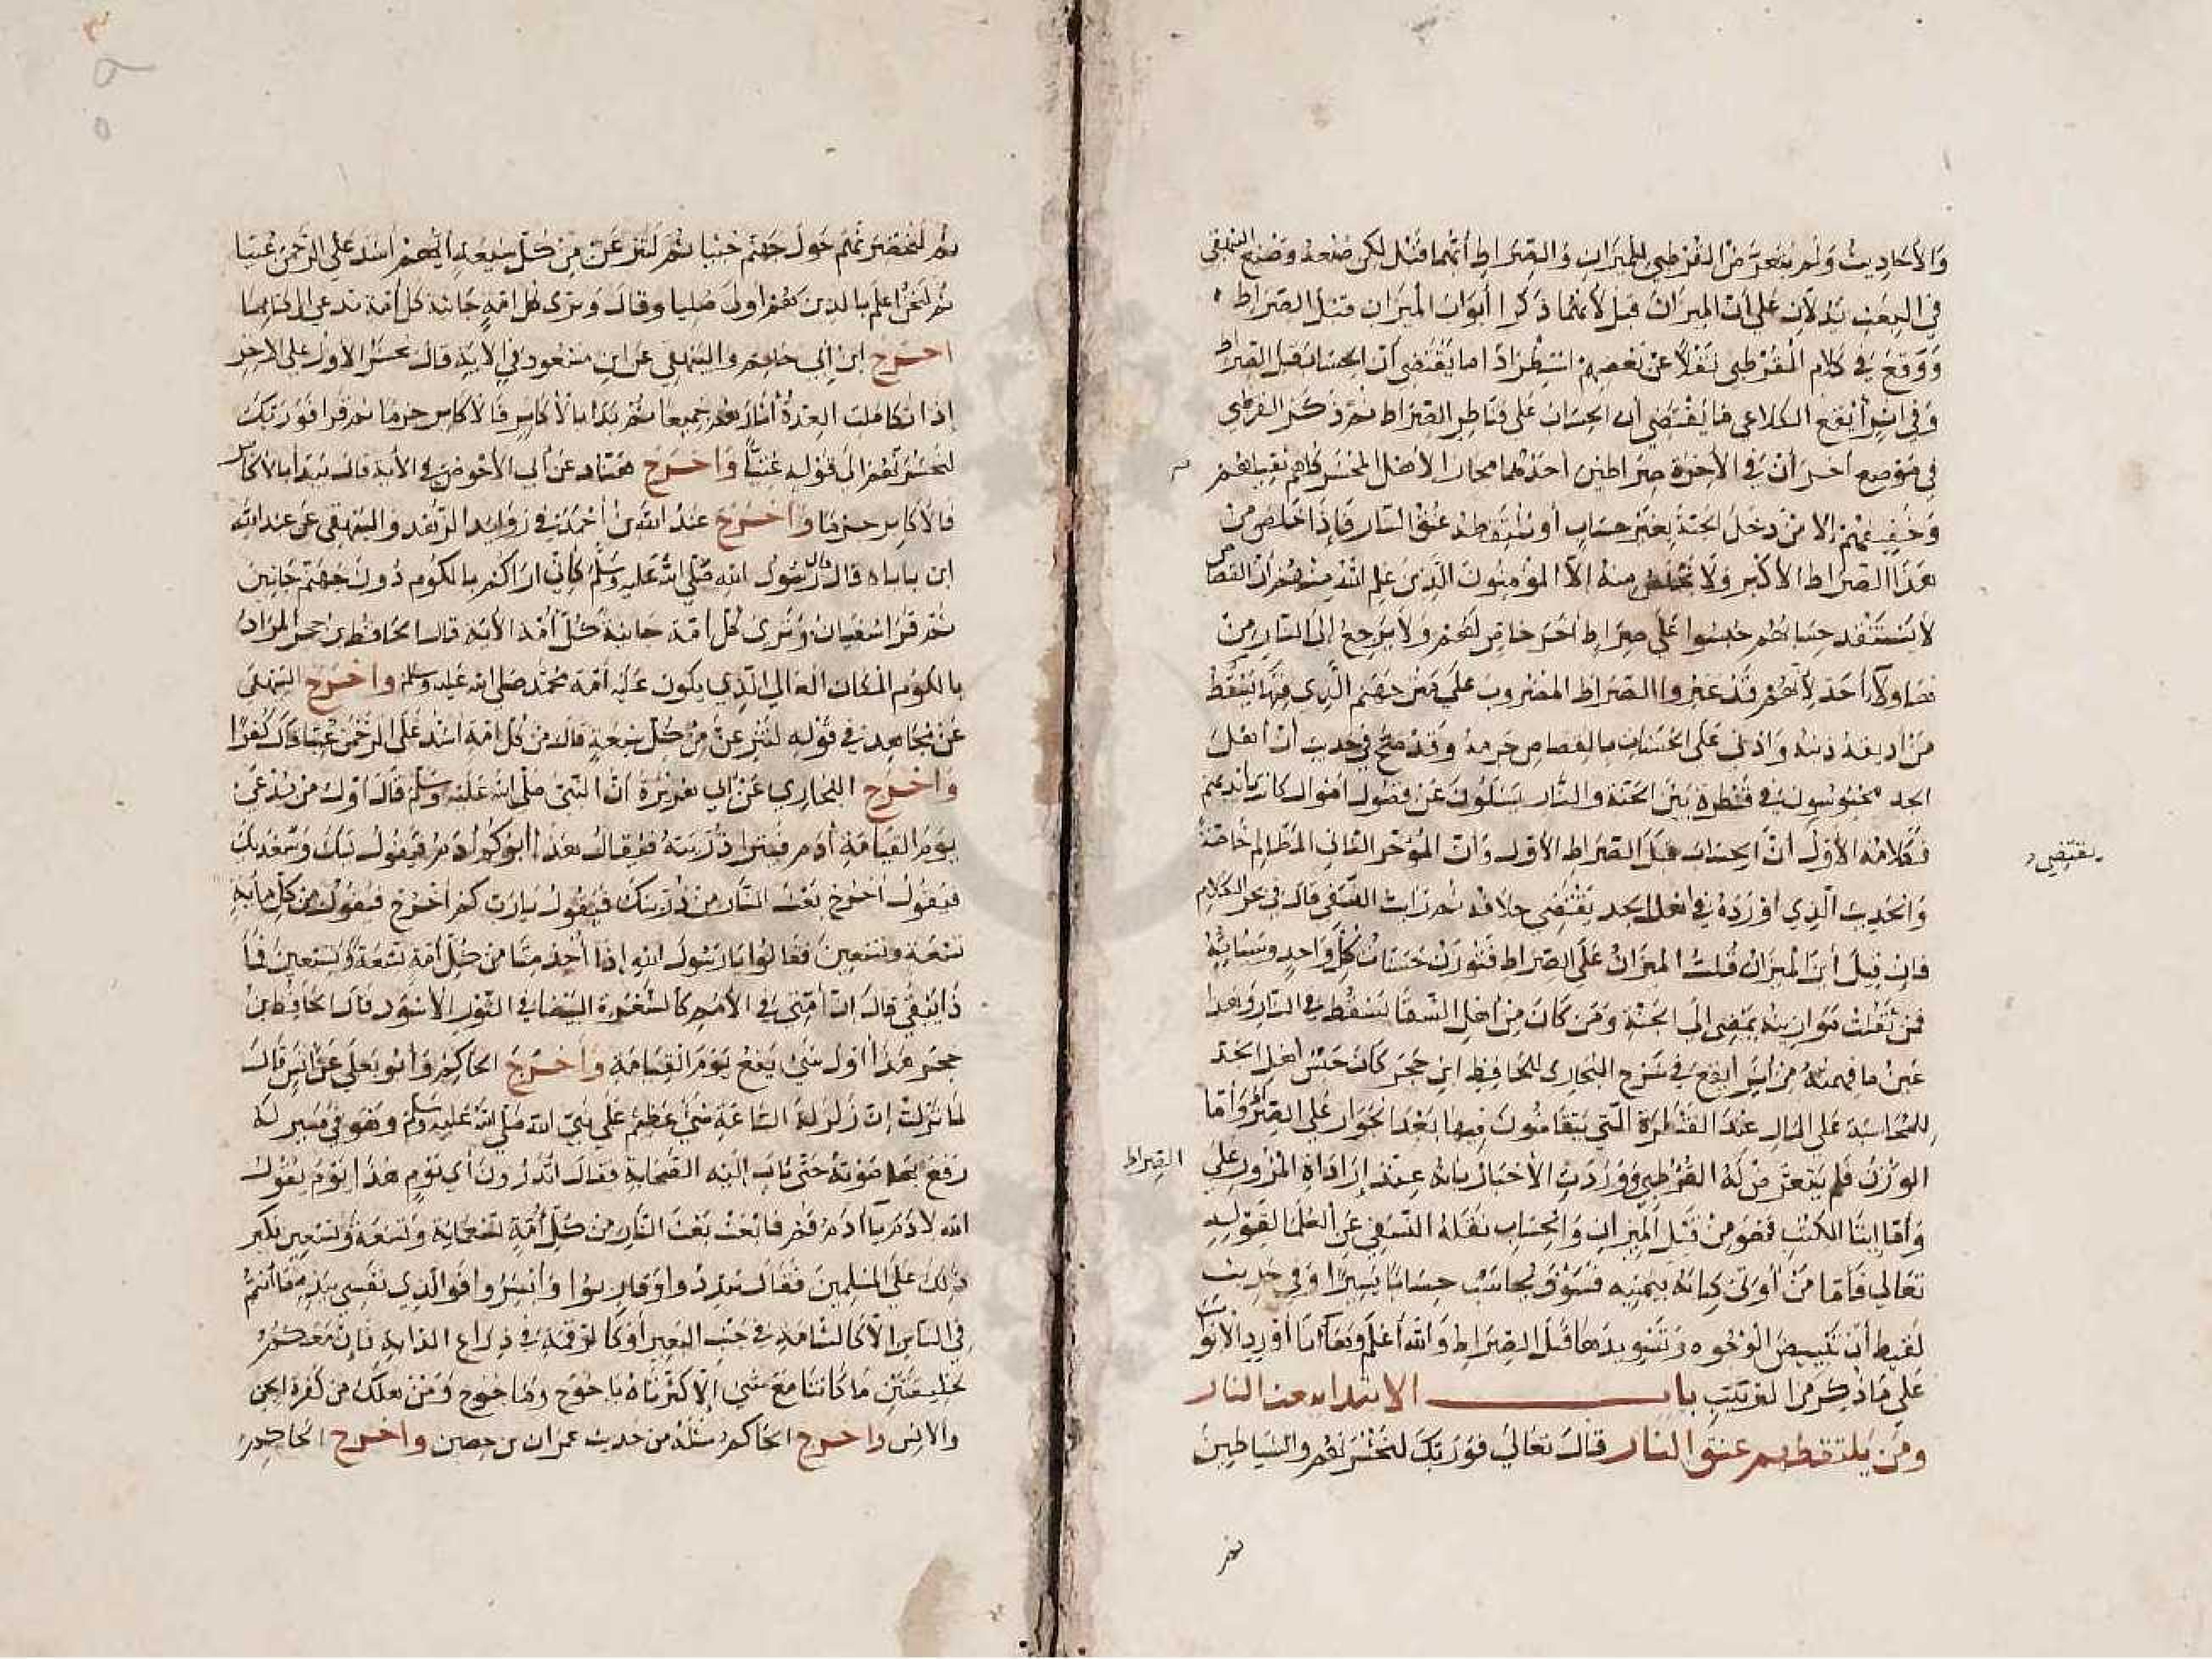 والأحاديث ولم يتعرض القرطبي للميزان والصراط أيهما قبل لكن صنعه وصنع البيهقي
في البعث يدلان على أن الميزان قبل لأنهما ذكرا أبواب الميزان قبل الصراط
ووقع في كلام القرطبي نقلا عن بعضهم استطرادا ما يقتضي أن الحساب قبل الصراط
وفي اثر أيفع الكلاعي ما يقتضي أن الحساب على قناطر الصراط ثم ذكر القرطبي
في موضع اخر أن في الآخرة صراطين أحدهما مجاز الأهل المحشر كلهم ثقيلهم
وخفيفهم إلا من دخل الجنة بغير حساب أو يلتقطه عنق النار فإذا خلص من
هذا الصراط الأكبر ولا يخلص منه الا المؤمنون الذين علم الله منهم أن القصاص
لا يستنفد حسناتهم حبسوا على صراط آخر خاص لهم ولا يرجع إلى النار من
هٰؤلاء أحد لأنهم قد عبروا الصراط المضروب على متن جهنم الذي فيها يسقط
من أوبقه ذنبه واربى على الحسنات بالقصاص جرمه وقد صح في حديث أن أهل
الجد محبوسون في قنطرة بين الجنة والنار يسئلون عن فضول أموال كانت بأيديهم
فكلامه الأول أن الحساب قبل الصراط الأول وأن المؤخر الثاني المظالم خاصة
يقتضي
والحديث الذي أورده في اهل الجد يقتضي خلافه ثم رأيت النسفي قال في بحر الكلام
فان قيل أين الميزان قلت الميزان على الصراط فتوزن حسنات كل واحد وسيئاته
فمن ثقلت موازينه يمضي إلى الجنة ومن كان من أهل الشقا يسقط في النار وهذا
عين ما فهمته من اثر أيفع في شرح البخاري للحافظ ابن حجر كان حبس أهل الجد
للمحاسبة على المال عند القنطرة التي يتقاصون فيها بعد الجواز على الصراط وأما
الوزن فلم يتعرض له القرطبي ووردت الأخبار بأنه عند إرادة المرور على
الصراط
وأما إيتا الكتب فهو من قبل الميزان والحساب نقله النسفي عن العلما لقوله
تعالى فأما من أوتي كتابه بيمينه فسوف يحاسب حسابا يسيرا وفي حديث
لقيط أن تبييض الوجوه وتسويدها قبل الصراط والله أعلم وها أنا أورد الأبواب
على ما ذكر من الترتيب باب الابتداء ببعث النار
ومن يلتقطهم عنق النار قال تعالى فوربك لنحشرنهم والشياطين
ثم
ثم لنحضرنهم حول جهنم جثيا ثم لننزعن من كل شيعة أيهم اشد على الرحمن عتيا
ثم لنحن اعلم بالذين هم اولى صليا وقال وترى كل امة جاثية كل أمة تدعى الى كتابها
اخرج ابن أبي حاتم والبيهقي عن ابن مسعود في الآية قال يحشر الأول على الاخر
إذا تكاملت العدة أثارهم جميعا ثم بدا بالأكابر فالأكابر جرما ثم قرا فوربك
لنحشرنهم الى قوله عتيا واخرج هناد عن أبي الأحوص في الآية قال يبدأ بالأكابر
فالأكابر جرما واخرج عبد الله بن أحمد في زوايد الزهد والبيهقي عن عبد الله
ابن باباه قال قال رسول الله صلى الله عليه وسلم كأني اراكم بالكوم دون جهنم جاثين
ثم قرا سفيان وترى كل امة جاثية كل أمة الآية قال الحافظ بن حجر المراد
بالكوم المكان العالي الذي يكون عليه أمة محمد صلى الله عليه وسلم واخرج البيهقي
عن مجاهد في قوله لننزعن من كل شيعة قال من كل امة اشد على الرحمن عتيا قال كفرا
واخرج البخاري عن أبي هريرة أن النبي صلى الله عليه وسلم قال أول من يدعى
يوم القيامة أدم فتترا ذريته فيقال هذا أبوكم أدم فيقول لبيك وسعديك
فيقول اخرج بعث النار من ذريتك فيقول يا رب كم اخرج فيقول من كل مأية
تسعة وتسعين فقالوا يا رسول الله إذا أخذ منا من كل أمة تسعة وتسعين فما
ذا يبقى قال إن أمتي في الأمم كالشعرة البيضا في الثور الأسود قال الحافظ بن
حجر هذا أول شيء يقع يوم القيامة واخرج الحاكم وأبو يعلى عن أنس قال
لما نزلت إن زلزلة الساعة شيء عظيم على نبي الله صلى الله عليه وسلم وهو في مسير له
رفع بها صوته حتى ثاب اليه الصحابة فقال اتدرون أي يوم هذا يوم يقول
الله لأدم يا أدم قم فابعث بعث النار من كل أمة تسعماية وتسعة وتسعين فكبر
ذلك على المسلمين فقال سددوا وقاربوا وأبشروا فوالذي نفسي بيده ما أنتم
في الناس الا كالشامة في جنب البعير أو كالرقمة في ذراع الدابة فإن معكم
لخليقتين ما كانتا مع شيء إلا كثرتاه ياجوج وماجوج ومن هلك من كفرة الجن
والانس واخرج الحاكم مثله من حديث عمران بن حصين واخرج الحاكم